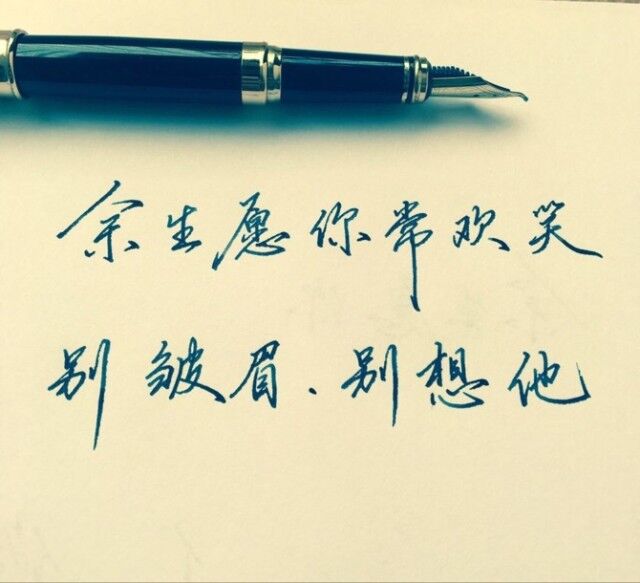 余生愿你常欢笑
别皱眉、别想他